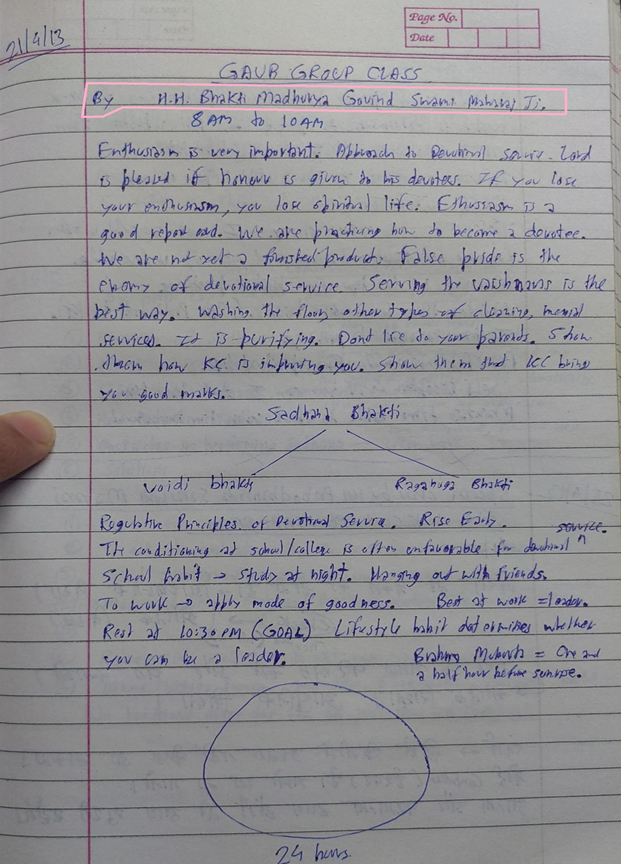 Page No.
Date
21/4/13
GAUR GROUP CLASS
By H.H. Bhakti Madhurya Govind Swami Maharaj Ji.
8 AM to 10 AM
Enthusiasm is very important. Approach to Devotional service. Lord
is pleased if honour is given to his devotees. If you lose
your enthusiasm, you lose spiritual life. Ethusiasm is a
good report card. We are practicing how to become a devotee.
We are not yet a finished product. False pride is the
enemy of devotional service. Serving the vaishnavas is the
best way. Washing the floor, other types of cleaning, menial
services. It is purifying. Dont lie to your parents. Show
them how KC is improving you. Show them that KC bring
you good marks.
Sadhana Bhakti
Vaidi bhakti Raganuga Bhakti
Regulative Principles of Devotional Service. Rise Early.
The conditioning at school/college is often unfavorable for devotional service.
School habit → study at night. Hanging out with friends.
To work → apply mode of goodness. Best at work = leader.
Rest at 10:30 PM (GOAL) Lifestyle habit determines whether
you can be a leader. Brahma Muhurta = One and
a half hour before sunrise.
24 hours.